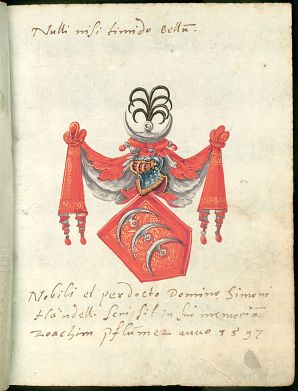 Nulli nisi timido bellũ.
Nobili et perdocto Domino Simoni
Händelli scripsit in sui memoriã
Joachim Pflümer anno 1597